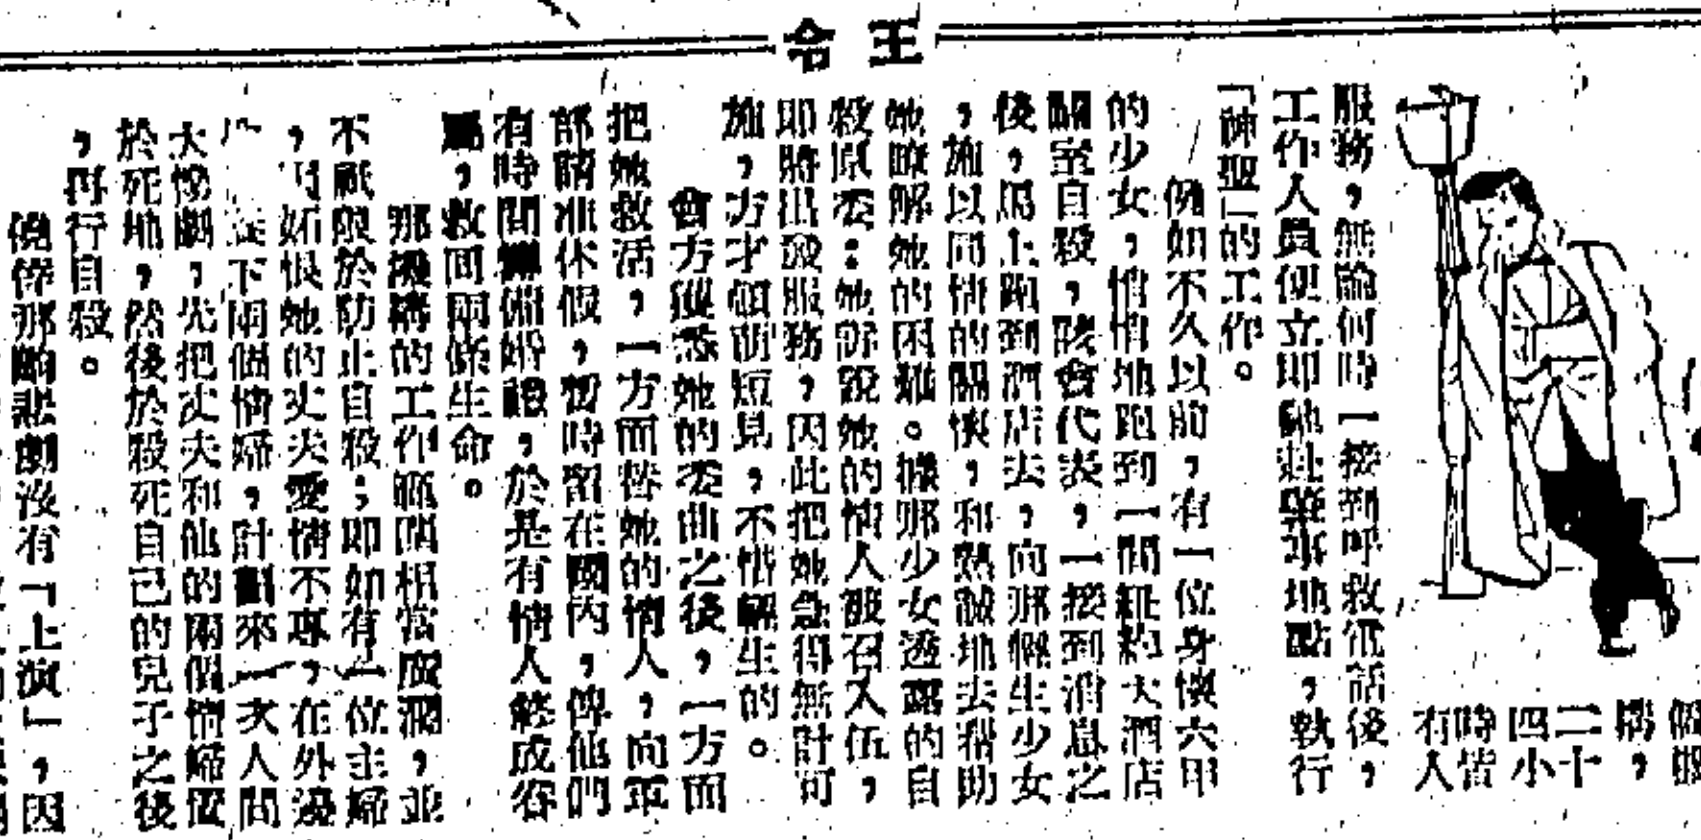 王令
二十
四小
時皆
有人
服務，無論何時一接到呼救電話後，
工作人員便立即馳赴肇事地點，執行
「神聖」的工作。
例如不久以前，有一位身懷六甲
的少女，悄悄地跑到一間紐約大酒店
闢室自殺，該會代表，一接到消息之
後，馬上跑到酒店去，向那輕生少女
，施以同情的關懷，和熱誠地去幫助
她瞭解她的困難。據那少女透露的自
殺原委：她訴說她的情人被召入伍，
即將出發服務，因此把她急得無計可
施，方才頓萌短見，不惜輕生的。
會方獲悉她的委曲之後，一方面
把她救活，一方面替她的情人，向軍
部請准休假，暫時留在國內，俾他們
有時間籌備婚禮，於是有情人終成眷
屬，救回兩條生命。
那機構的工作範圍相當廣濶，並
不祇限於防止自殺；即如有一位主婦
，妒恨她的丈夫愛情不專，在外邊
下兩個情婦，計劃來一次人間
大慘劇，先把丈夫和他的兩個情婦置
於死地，然後於殺死自己的兒子之後
，再行自殺。
僥倖那齣悲劇沒有「上演」，因